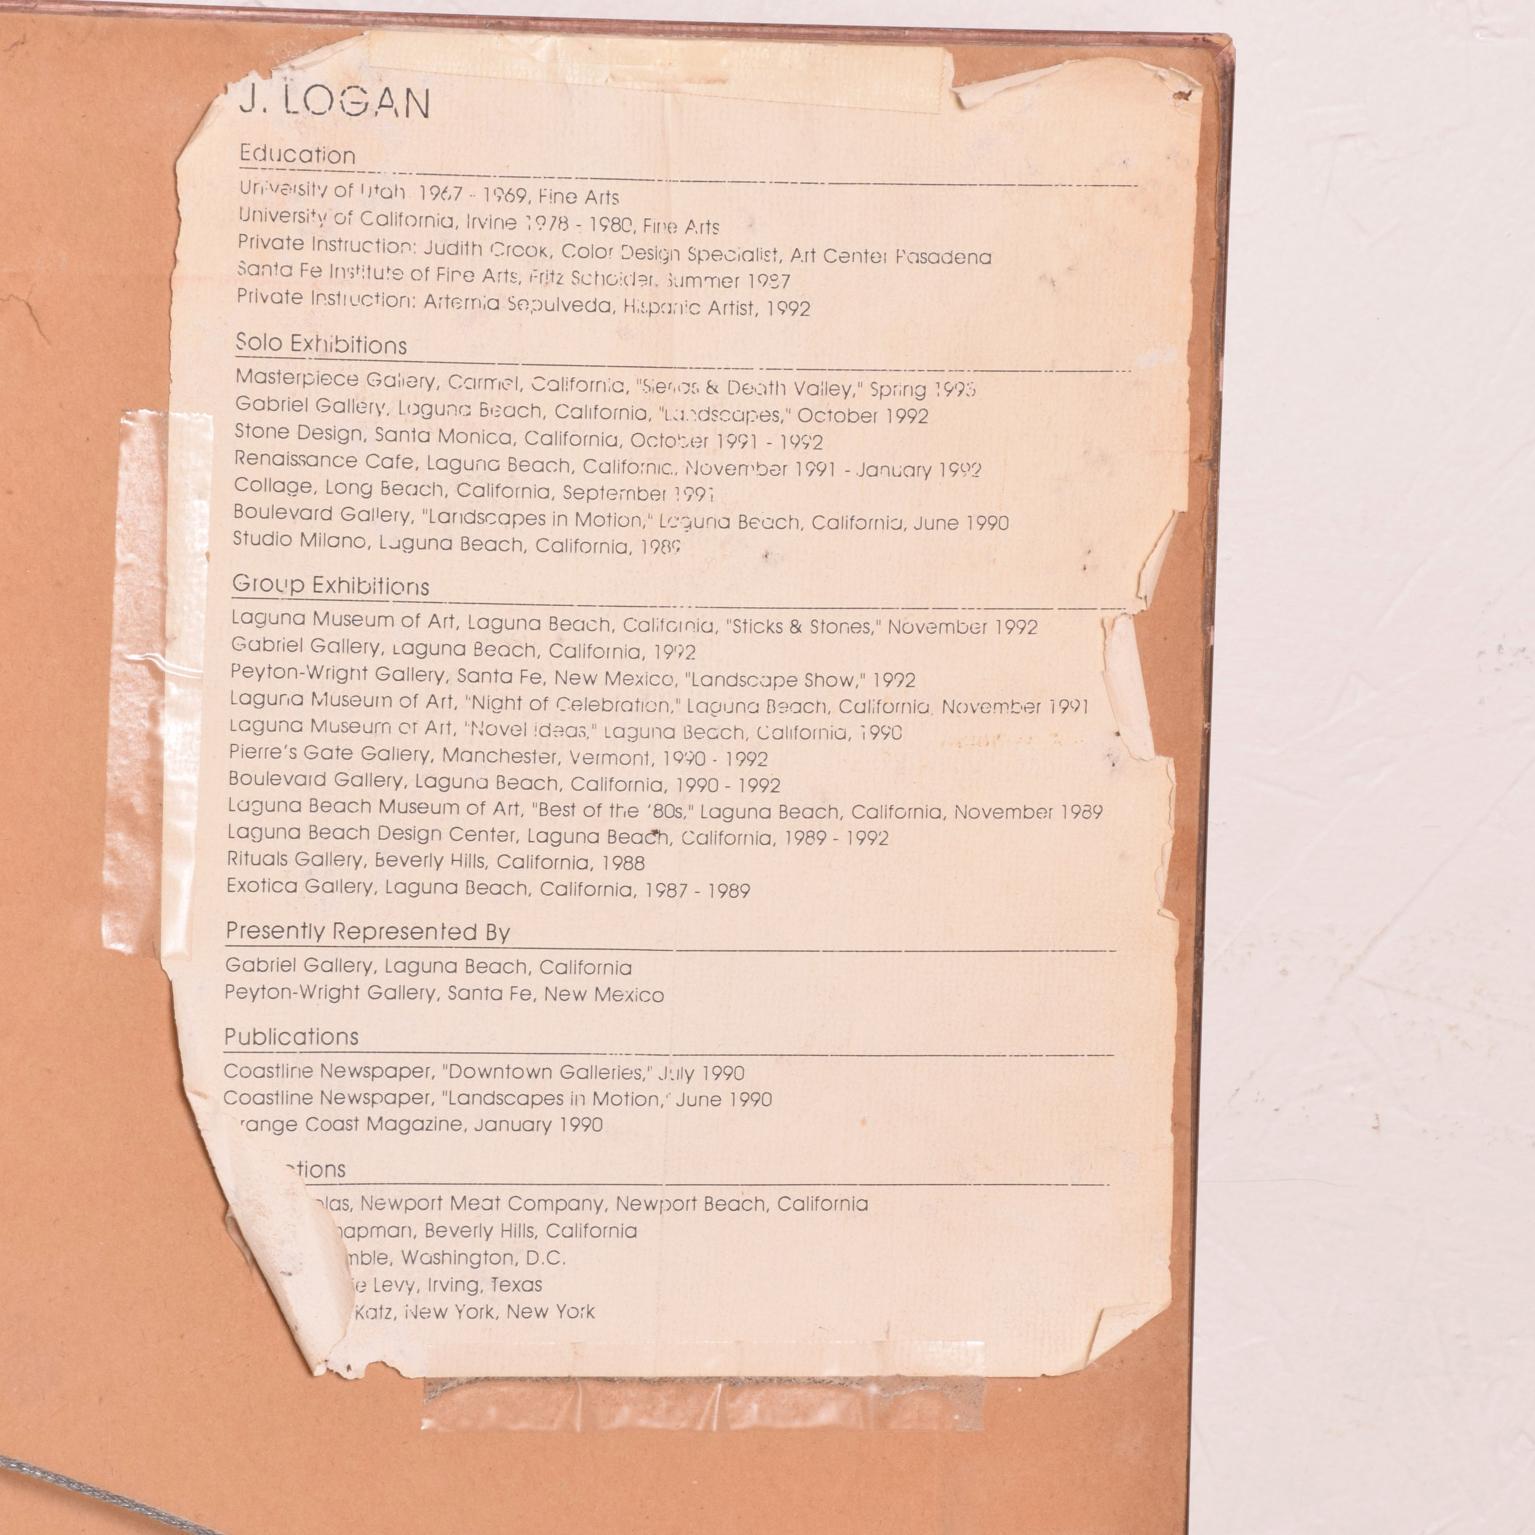 J. LOGAN
Education
University of Utah 1967 - 1969, Fine Arts
University of California, Irvine 1978 - 1980, Fine Arts
Private Instruction: Judith Crook, Color Design Specialist, Art Center Pasadena
Santa Fe Institute of Fine Arts, Fritz Scholder, Summer 1987
Private Instruction: Artemia Sepulveda, Hispanic Artist, 1992
Solo Exhibitions
Masterpiece Gallery, Carmel, California, "Sierras & Death Valley," Spring
Gabriel Gallery, Laguna Beach, California, "Landscapes," October 1992
Stone Design, Santa Monica, California, October 1991 - 1992
Renaissance Cafe, Laguna Beach, California, November 1991 - January 1992
Collage, Long Beach, California, September 1991
Boulevard Gallery, "Landscapes in Motion," Laguna Beach, California, June 1990
Studio Milano, Laguna Beach, California, 1989
Group Exhibitions
Laguna Museum of Art, Laguna Beach, California, "Sticks & Stones," November 1992
Gabriel Gallery, Laguna Beach, California, 1992
Peyton-Wright Gallery, Santa Fe, New Mexico, "Landscape Show," 1992
Laguna Museum of Art, "Night of Celebration," Laguna Beach, California, November 1991
Laguna Museum of Art, "Novel Ideas," Laguna Beach, California, 1990
Pierre's Gate Gallery, Manchester, Vermont, 1990 - 1992
Boulevard Gallery, Laguna Beach, California, 1990 - 1992
Laguna Beach Museum of Art, "Best of the '80s," Laguna Beach, California, November 1989
Laguna Beach Design Center, Laguna Beach, California, 1989 - 1992
Rituals Gallery, Beverly Hills, California, 1988
Exotica Gallery, Laguna Beach, California, 1987 - 1989
Presently Represented By
Gabriel Gallery, Laguna Beach, California
Peyton-Wright Gallery, Santa Fe, New Mexico
Publications
Coastline Newspaper, "Downtown Galleries," July 1990
Coastline Newspaper, "Landscapes in Motion," June 1990
range Coast Magazine, January 1990
ctions
olas, Newport Meat Company, Newport Beach, California
hapman, Beverly Hills, California
mble, Washington, D.C.
ie Levy, Irving, Texas
Katz, New York, New York